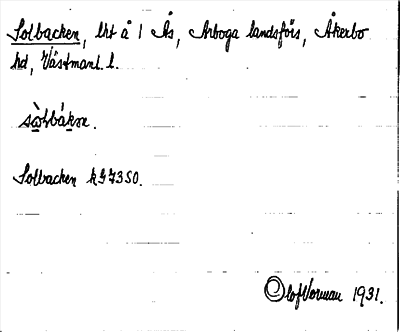 Solbacken, lht å 1 Ås, Arboga landsförs, Åkerbo
hd, Västmanl. l.
Solbacken k G 7350.
Olof Vorman 1931.